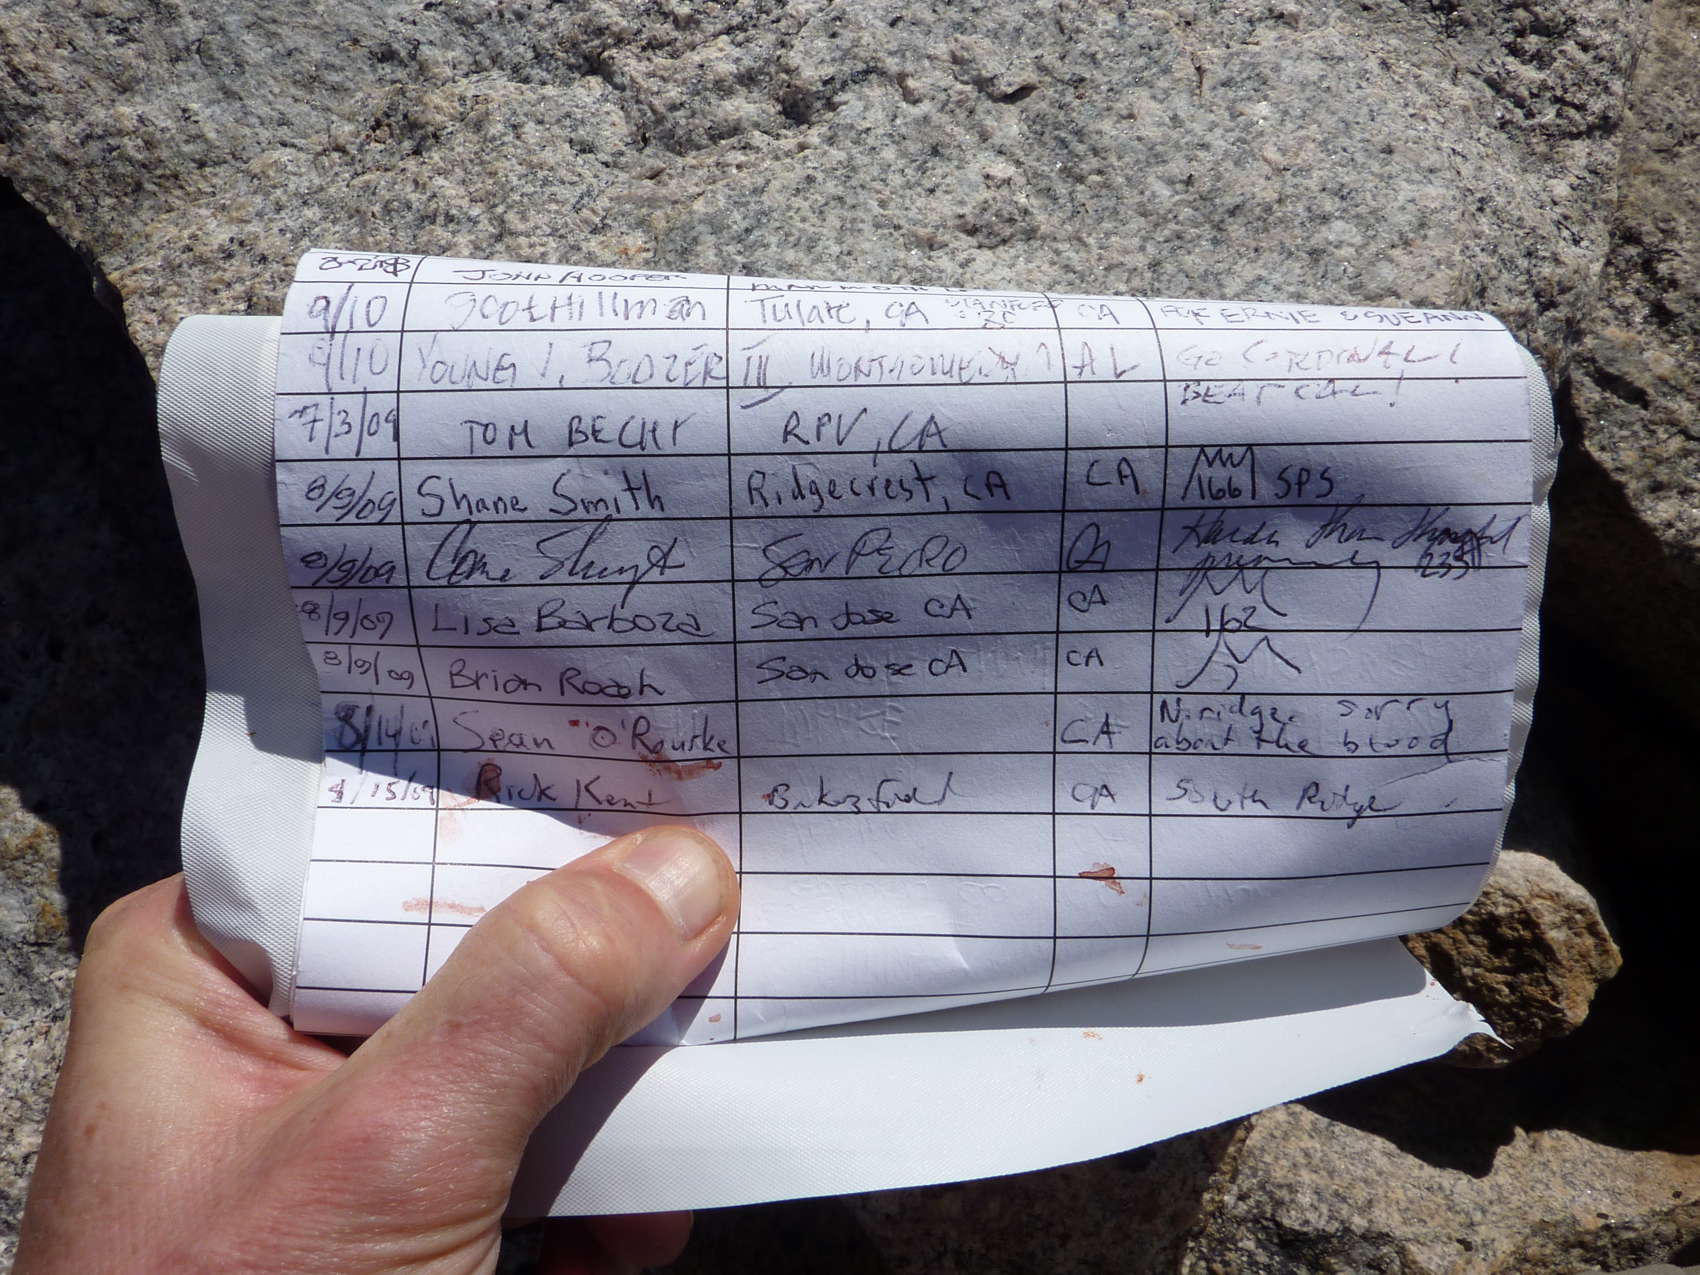 JOHN HOOPER
9/10 Scot Hillman Tulare, CA CA FOR ERNIE & SUEANN
9/10 YOUNG J. BOOZER III MONTGOMERY AL GO CARDINAL!
BEAT CAL!
7/3/09 TOM BECHT RPV, CA
8/9/09 Shane Smith Ridgecrest, CA CA 166 SPS
8/9/09 San PEDRO CA Harder than thought
235
8/9/09 Lisa Barboza San Jose CA CA 162
8/9/09 Brian Roach San Jose CA CA
8/14/09 Sean "O'Rourke CA N. ridge. sorry
about the blood
8/15/09 Rick Kent Bakersfield CA South Ridge